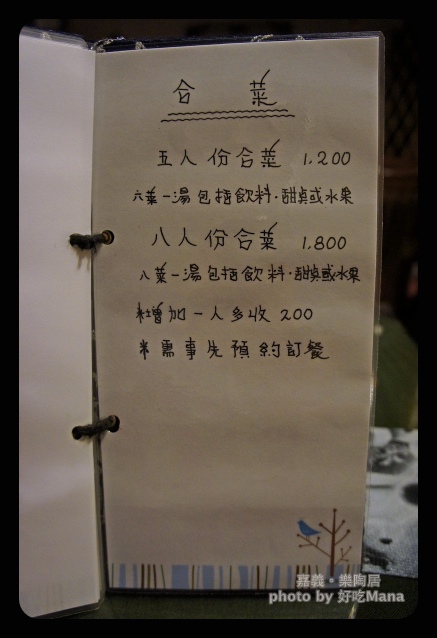 合 菜
五人份合菜 1,200
六菜一湯包括飲料·甜點或水果
八人份合菜 1,800
八菜一湯包括飲料·甜點或水果
※增加一人多收 200
※需事先預約訂餐
嘉義。樂陶居
photo by 好吃Mana